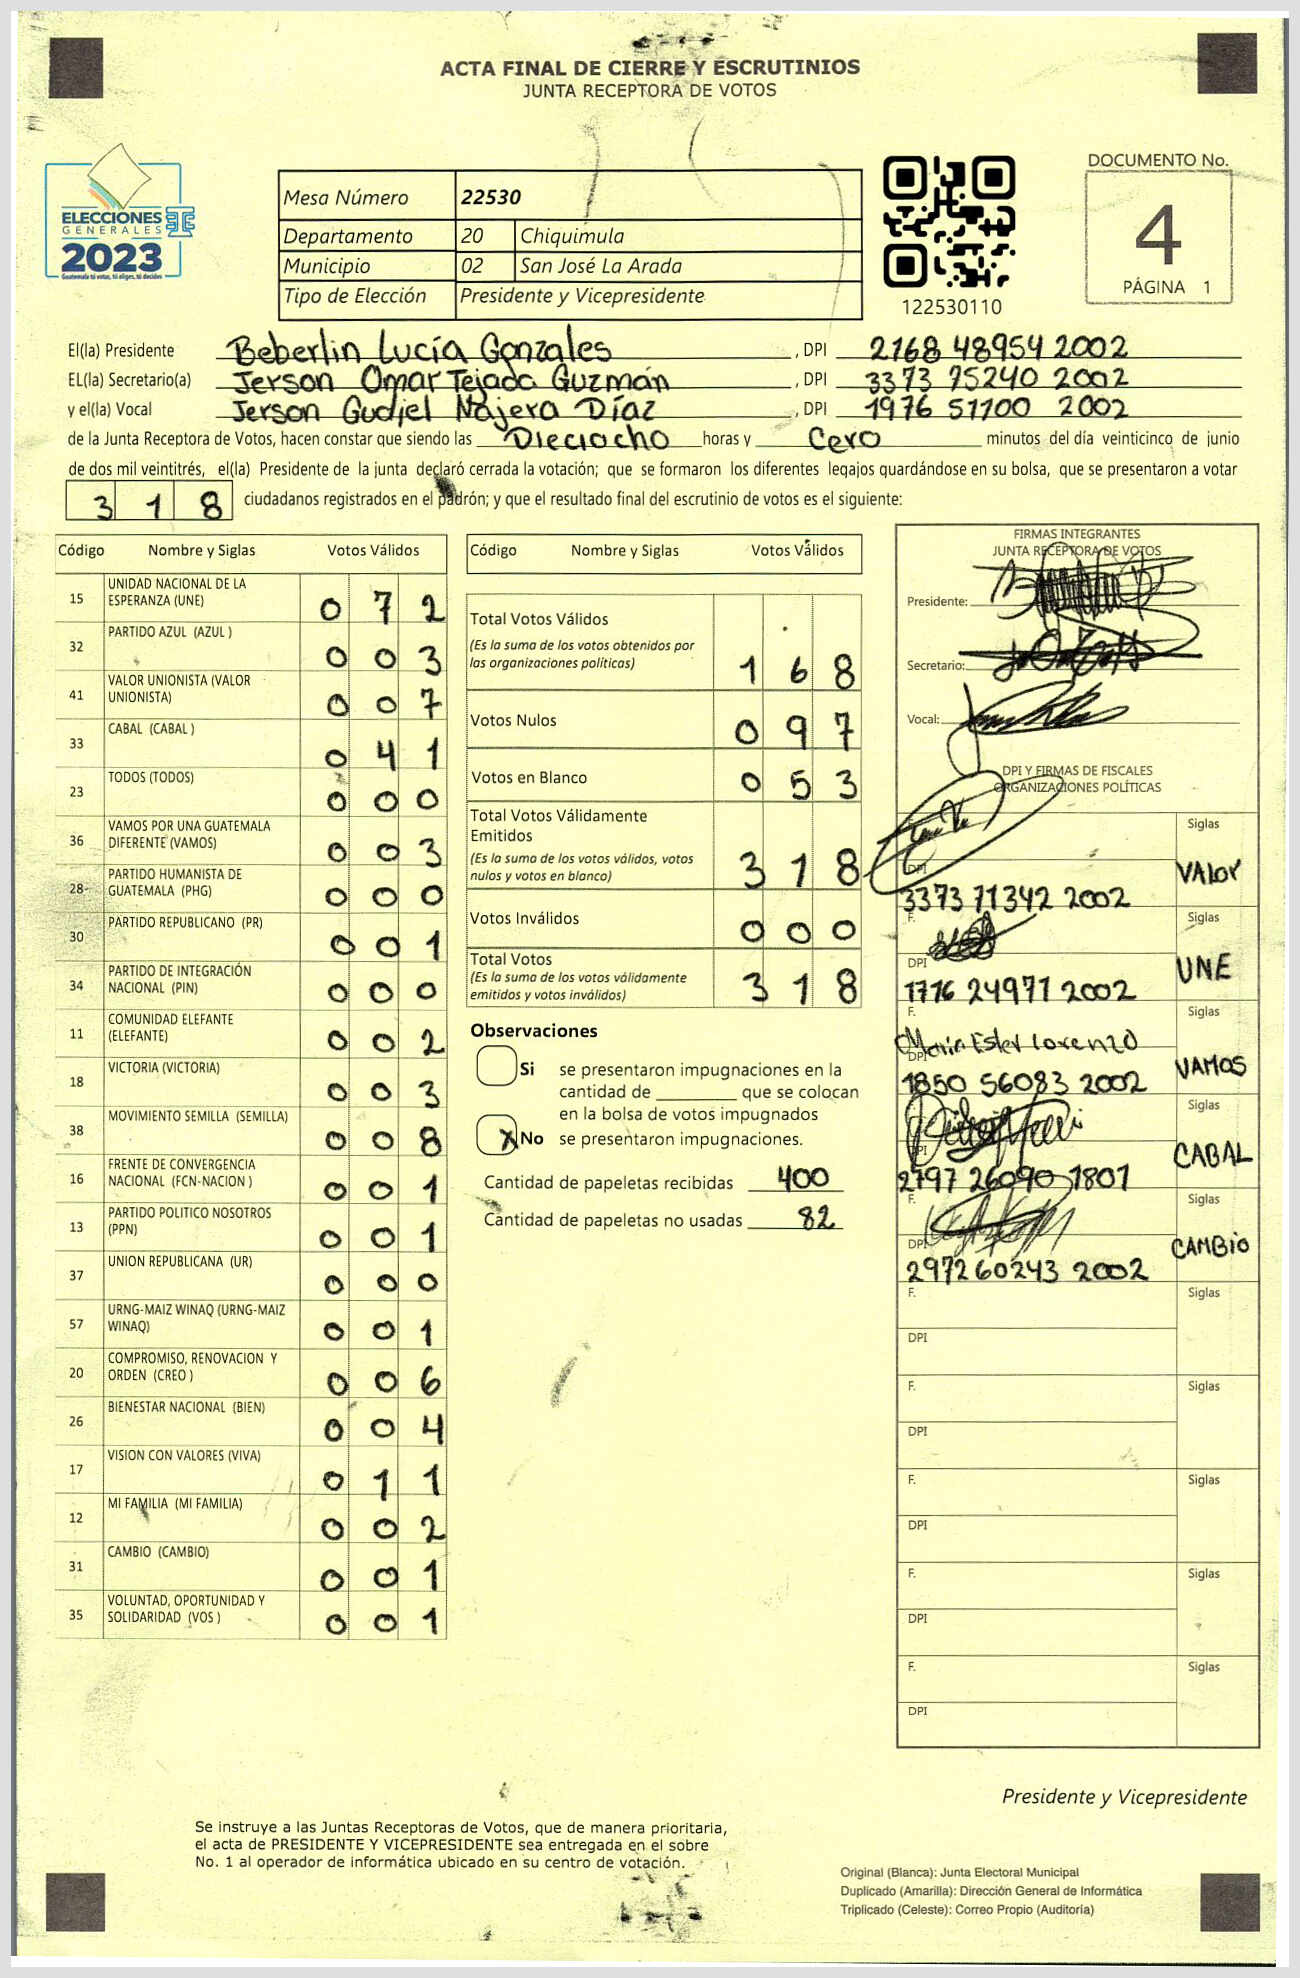 ACTA FINAL DE CIERRE Y ESCRUTINIOS
JUNTA RECEPTORA DE VOTOS
ELECCIONES
GENERALES
2023
Guatemala tú votas, tú eliges, tú decides
Mesa Número 22530
Departamento 20 Chiquimula
Municipio 02 San José La Arada
Tipo de Elección Presidente y Vicepresidente
122530110
DOCUMENTO No.
4
PÁGINA 1
El(la) Presidente Beberlin Lucía Gonzales, DPI 2168 48954 2002
EL(la) Secretario(a) Jerson Omar Tejada Guzmán, DPI 3373 75240 2002
y el(la) Vocal Jerson Gudiel Najera Díaz, DPI 1976 51700 2002
de la Junta Receptora de Votos, hacen constar que siendo las Dieciocho horas y Cero minutos del día veinticinco de junio
de dos mil veintitrés, el(la) Presidente de la junta declaró cerrada la votación; que se formaron los diferentes legajos quardándose en su bolsa, que se presentaron a votar
318 ciudadanos registrados en el padrón; y que el resultado final del escrutinio de votos es el siguiente:
Código Nombre y Siglas Votos Válidos
15 UNIDAD NACIONAL DE LA
ESPERANZA (UNE) 0 7 2
32 PARTIDO AZUL (AZUL ) 0 0 3
41 VALOR UNIONISTA (VALOR
UNIONISTA) 0 0 7
33 CABAL (CABAL ) 0 4 1
23 TODOS (TODOS) 0 0 0
36 VAMOS POR UNA GUATEMALA
DIFERENTE (VAMOS) 0 0 3
28 PARTIDO HUMANISTA DE
GUATEMALA (PHG) 0 0 0
30 PARTIDO REPUBLICANO (PR) 0 0 1
34 PARTIDO DE INTEGRACIÓN
NACIONAL (PIN) 0 0 0
11 COMUNIDAD ELEFANTE
(ELEFANTE) 0 0 2
18 VICTORIA (VICTORIA) 0 0 3
38 MOVIMIENTO SEMILLA (SEMILLA) 0 0 8
16 FRENTE DE CONVERGENCIA
NACIONAL (FCN-NACION ) 0 0 1
13 PARTIDO POLITICO NOSOTROS
(PPN) 0 0 1
37 UNION REPUBLICANA (UR) 0 0 0
57 URNG-MAIZ WINAQ (URNG-MAIZ
WINAQ) 0 0 1
20 COMPROMISO, RENOVACION Y
ORDEN (CREO ) 0 0 6
26 BIENESTAR NACIONAL (BIEN) 0 0 4
17 VISION CON VALORES (VIVA) 0 1 1
12 MI FAMILIA (MI FAMILIA) 0 0 2
31 CAMBIO (CAMBIO) 0 0 1
35 VOLUNTAD, OPORTUNIDAD Y
SOLIDARIDAD (VOS ) 0 0 1
Código Nombre y Siglas Votos Válidos
Total Votos Válidos
(Es la suma de los votos obtenidos por
las organizaciones políticas) 1 6 8
Votos Nulos 0 9 7
Votos en Blanco 0 5 3
Total Votos Válidamente
Emitidos
(Es la suma de los votos válidos, votos
nulos y votos en blanco) 3 1 8
Votos Inválidos 0 0 0
Total Votos
(Es la suma de los votos válidamente
emitidos y votos inválidos) 3 1 8
Observaciones
Si se presentaron impugnaciones en la
cantidad de ________ que se colocan
en la bolsa de votos impugnados
X No se presentaron impugnaciones.
Cantidad de papeletas recibidas 400
Cantidad de papeletas no usadas 82
FIRMAS INTEGRANTES
JUNTA RECEPTORA DE VOTOS
Presidente:
Secretario:
Vocal:
DPI Y FIRMAS DE FISCALES
ORGANIZACIONES POLÍTICAS
Siglas
DPI
3373 71342 2002 VALOR
F. Siglas
DPI
1776 24971 2002 UNE
F. Siglas
Maria Ester Lorenzo
DPI
1850 56083 2002 VAMOS
Siglas
DPI
2797 26090 1801 CABAL
F. Siglas
DPI
2972 60243 2002 CAMBIO
F. Siglas
DPI
F. Siglas
DPI
F. Siglas
DPI
F. Siglas
DPI
F. Siglas
DPI
Presidente y Vicepresidente
Se instruye a las Juntas Receptoras de Votos, que de manera prioritaria,
el acta de PRESIDENTE Y VICEPRESIDENTE sea entregada en el sobre
No. 1 al operador de informática ubicado en su centro de votación.
Original (Blanca): Junta Electoral Municipal
Duplicado (Amarilla): Dirección General de Informática
Triplicado (Celeste): Correo Propio (Auditoría)